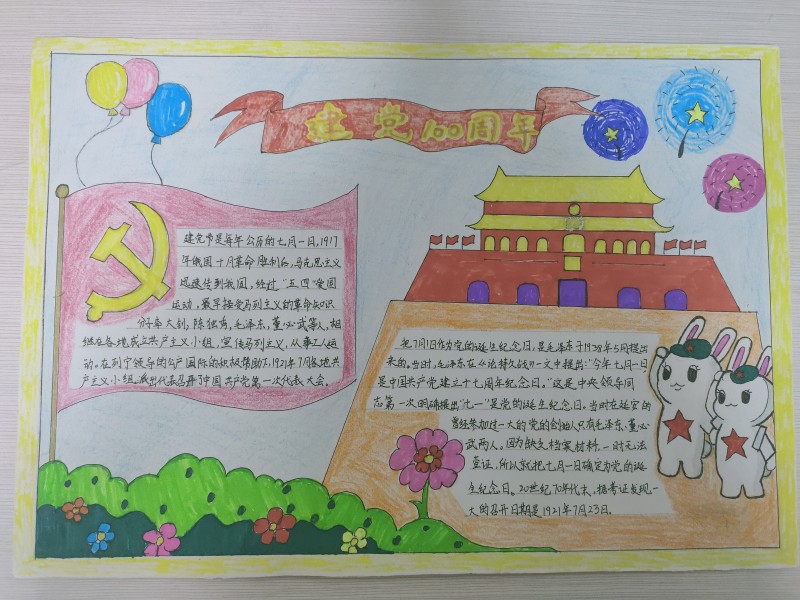 建党100周年
建党节是每年公历的七月一日,1917
年俄国十月革命胜利后,马克思主义
迅速传到我国,经过"五四"爱国
运动,最早接受马列主义的革命知识
分子李大钊,陈独秀,毛泽东,董必武等人,相
继在各地成立共产主义小组,宣传马列主义,从事工人运
动。在列宁领导的共产国际的积极帮助下,1921年7月各地共
产主义小组派出代表召开了中国共产党第一次代表大会。
把7月1日作为党的诞生纪念日,是毛泽东于1938年5月提出
来的。当时,毛泽东在《论持久战》一文中提出:"今年七月一日
是中国共产党建立十七周年纪念日。"这是中央领导同
志第一次明确提出"七一"是党的诞生纪念日。当时在延安的
曾经参加过一大的党的创始人只有毛泽东、董必
武两人。因为缺乏档案材料,一时无法
查证,所以就把七月一日确定为党的诞
生纪念日。20世纪70年代末,据考证发现,一
大的召开日期是1921年7月23日。